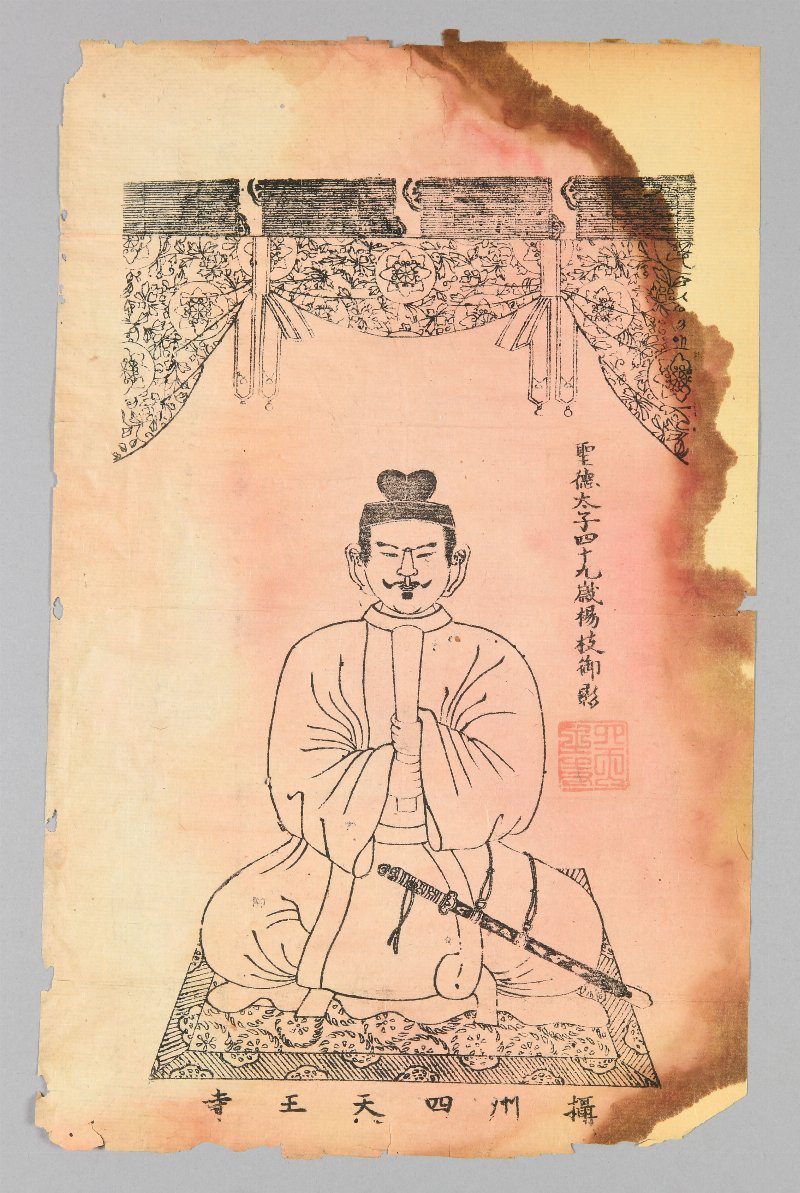 聖德太子四十九歳楊枝御影
攝州四天王寺